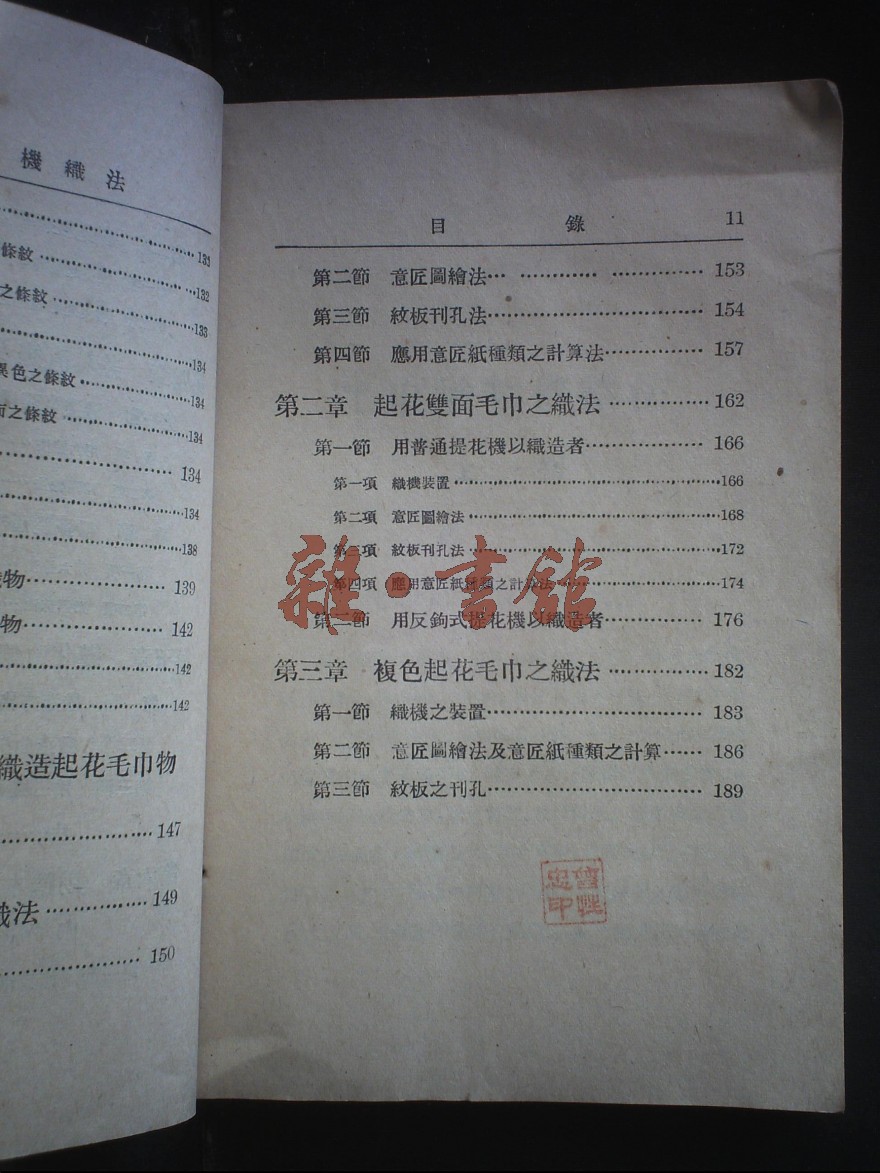 機織法
133
條紋 132
之條紋 133
134
異色之條紋 134
之條紋 134
134
134
138
物 139
物 142
142
142
織造起花毛巾物
147
織法 149
150
目錄 11
第二節 意匠圖繪法 153
第三節 紋板刊孔法 154
第四節 應用意匠紙種類之計算法 157
第二章 起花雙面毛巾之織法 162
第一節 用普通提花機以織造者 166
第一項 織機裝置 166
第二項 意匠圖繪法 168
第三項 紋板刊孔法 172
第四項 應用意匠紙種類之計算法 174
第二節 用反鉤式提花機以織造者 176
第三章 複色起花毛巾之織法 182
第一節 織機之裝置 183
第二節 意匠圖繪法及意匠紙種類之計算 186
第三節 紋板之刊孔 189
雜·書館